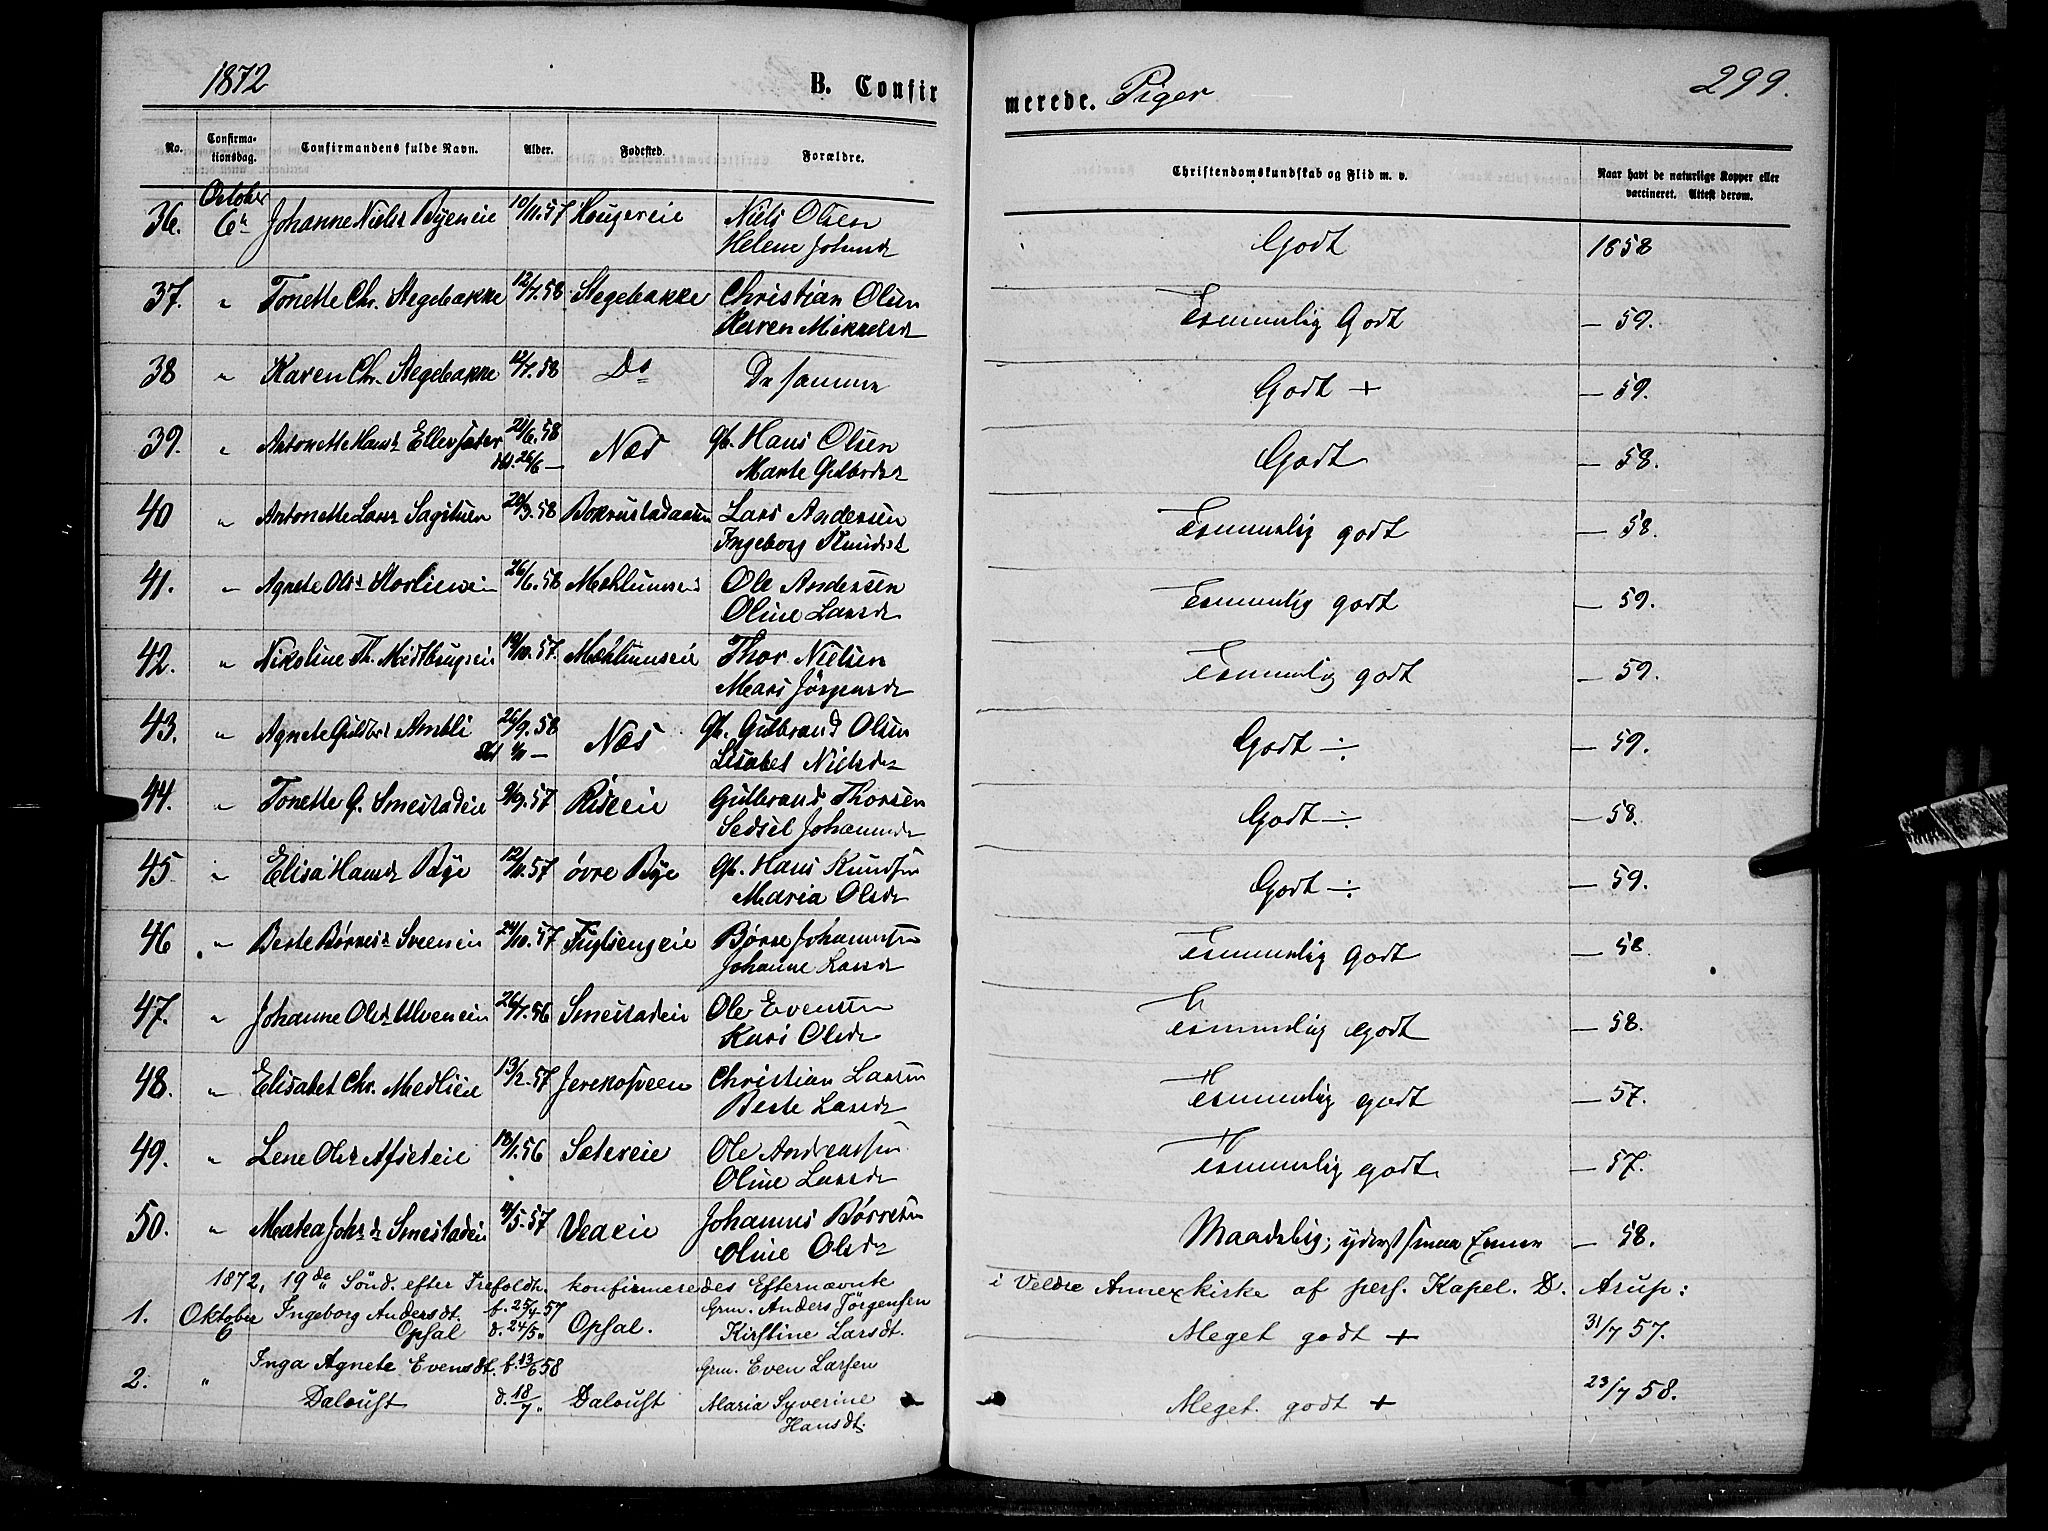 1872 B. Confirmerede. Piger 299.
No. Confirmationsdag. Confirmandens fulde Navn. Alder. Fødested. Forældre. Christendomskundskab og Flid m. v. Naar havt de naturlige Kopper eller vaccineret. Attest derom.
October
36. 6te Johanne Nielsd Byeneie 10/11.57 Haugereie Niels Olsen Godt 1858
Helene Johnsd
37. " Tonette Chr. Stegebakke 12/7.58 Stegebakke Christian Olsen Temmelig Godt — 59.
Karen Mikkelsd
38 " Karen Chr. Stegebakke 12/7.58 Do De samme Godt + — 59.
39. " Antonette Hansd Ellevsæter 6.58 Næs Gb. Hans Olsen Godt — 58.
dbt. 26/6 — Marte Gulbrdsd
40 " Antonette Larsd Sagstuen 20/3.58 Lars Andersen Temmelig godt — 58.
Ingeborg Knudsd
41. " Agnete Olsd 26/6.58 Mæhlumseie Ole Andersen Temmelig godt — 59.
Oline Larsd
42. " Nikoline Th. 19/10.57. Mæhlumseie Thor Nielsen Temmelig godt — 59.
Mari Jörgensd
43. " Agnete Gulbrd Ambli 26/9.58 Næs Gb. Gulbrand Olsen Godt ÷ — 59.
Lisabet Nielsd
44. " Tonette G. Smestadeie 9.57 Riseeie Gulbrand Thorsen Godt ÷ — 58.
Sedsel Johannesd
45 " Elisa Hansd Bye 12/11.57 øvre Bye Gb. Hans Knudsen Godt ÷ — 59.
Maria Olsd
46 " Berte Børresd Sveeneie 24/10.57 Fuglsengeie Børre Johannesen Temmelig godt — 58
Johanne Larsd
47. " Johanne Olsd Ulveneie 26/7.56 Smestadeie Ole Evensen Temmelig godt — 58.
Kari Olsd
48. " Elisabet Chr. Medlieie 13/2.57 Jerekosveen Christian Larsen Temmelig godt — 57.
Berte Larsd
49. " Lene Olsd 18/1.56 Sætereie Ole Andreassen Temmelig godt — 57.
Oline Larsd
50. " Mathea Johsd Smestadeie 5.57 Veaeie Johannes Børresen Maadelig; yderst smaa Evner — 58.
Oline Olsd
1872, 19de Sönd. efter Trefoldh. konfirmeredes Efternævnte i Veldre Annexkirke af pers. Kapel. D. Arup:
1. Oktober Ingeborg Andersdt. f. 25/4 57 Grm. Anders Jörgensen
6 Opsal d. 24/5 " Opsal. Kirstine Larsdt. Meget godt + 31/7 57.
2. " Inga Agnete Evensdt. f. 13/6 58 Grm. Even Larsen
Daloust d. 18/7 " Daloust Maria Syverine Meget godt + 23/7 58.
Hansdt.